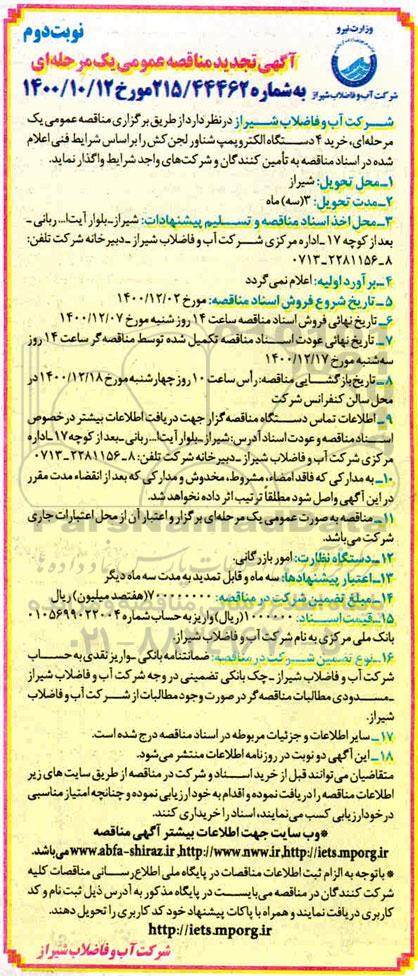 وزارت نیرو
شرکت آب و فاضلاب شیراز
نوبت دوم
آگهی تجدید مناقصه عمومی یک مرحله‌ای
به شماره ۲۱۵/۴۴۴۶۲ مورخ ۱۴۰۰/۱۰/۱۲
شرکت آب و فاضلاب شیراز در نظر دارد از طریق برگزاری مناقصه عمومی یک
مرحله‌ای، خرید ۴ دستگاه الکتروپمپ شناور لجن کش را بر اساس شرایط فنی اعلام
شده در اسناد مناقصه به تأمین کنندگان و شرکت‌های واجد شرایط واگذار نماید.
۱- محل تحویل: شیراز
۲- مدت تحویل: ۳ (سه) ماه
۳- محل اخذ اسناد مناقصه و تسلیم پیشنهادات: شیراز ـ بلوار آیت‌ا... ربانی ـ
بعد از کوچه ۱۷ ـ اداره مرکزی شرکت آب و فاضلاب شیراز ـ دبیرخانه شرکت تلفن:
۸ـ۲۲۸۱۱۵۶ـ۰۷۱۳
۴- برآورد اولیه: اعلام نمی گردد
۵- تاریخ شروع فروش اسناد مناقصه: مورخ ۱۴۰۰/۱۲/۰۲
۶- تاریخ نهائی فروش اسناد مناقصه ساعت ۱۴ روز شنبه مورخ ۱۴۰۰/۱۲/۰۷
۷- تاریخ نهائی عودت اسناد مناقصه تکمیل شده توسط مناقصه گر ساعت ۱۴ روز
سه شنبه مورخ ۱۴۰۰/۱۲/۱۷
۸- تاریخ بازگشایی مناقصه: رأس ساعت ۱۰ روز چهارشنبه مورخ ۱۴۰۰/۱۲/۱۸ در
محل سالن کنفرانس شرکت
۹- اطلاعات تماس دستگاه مناقصه گزار جهت دریافت اطلاعات بیشتر در خصوص
اسناد مناقصه و عودت اسناد آدرس: شیراز ـ بلوار آیت‌ا... ربانی ـ بعد از کوچه ۱۷ ـ اداره
مرکزی شرکت آب و فاضلاب شیراز ـ دبیرخانه شرکت تلفن: ۸ـ۲۲۸۱۱۵۶ـ۰۷۱۳
۱۰- به مدارکی که فاقد امضاء، مشروط، مخدوش و مدارکی که بعد از انقضاء مدت مقرر
در این آگهی واصل شود مطلقا ترتیب اثر داده نخواهد شد.
۱۱- مناقصه به صورت عمومی یک مرحله‌ای برگزار و اعتبار آن از محل اعتبارات جاری
شرکت می‌باشد.
۱۲- دستگاه نظارت: امور بازرگانی.
۱۳- اعتبار پیشنهادها: سه ماه و قابل تمدید به مدت سه ماه دیگر
۱۴- مبلغ تضمین شرکت در مناقصه: ۷۰۰۰۰۰۰۰۰ (هفتصد میلیون) ریال
۱۵- قیمت اسناد: ۱۰۰۰۰۰۰ (ریال) واریز به حساب شماره ۰۱۰۵۶۹۹۰۲۲۰۰۴
بانک ملی مرکزی به نام شرکت آب و فاضلاب شیراز.
۱۶- نوع تضمین شرکت در مناقصه: ضمانتنامه بانکی ـ واریز نقدی به حساب
شرکت آب و فاضلاب شیراز ـ چک بانکی تضمینی در وجه شرکت آب و فاضلاب شیراز
ـ مسدودی مطالبات مناقصه گر در صورت وجود مطالبات از شرکت آب و فاضلاب
شیراز.
۱۷- سایر اطلاعات و جزئیات مربوطه در اسناد مناقصه درج شده است.
۱۸- این آگهی دو نوبت در روزنامه اطلاعات منتشر می‌شود.
متقاضیان می‌توانند قبل از خرید اسناد و شرکت در مناقصه از طریق سایت های زیر
اطلاعات مناقصه را دریافت نموده و اقدام به خود ارزیابی نموده و چنانچه امتیاز مناسبی
در خود ارزیابی کسب می‌نمایند، اسناد را خریداری کنند.
*وب سایت جهت اطلاعات بیشتر آگهی مناقصه
www.abfa-shiraz.ir ,http://www.nww.ir,http://iets.mporg.ir می‌باشد.
* با توجه به الزام ثبت اطلاعات مناقصات در پایگاه ملی اطلاع رسانی مناقصات کلیه
شرکت کنندگان در مناقصه می‌بایست در پایگاه مذکور به آدرس ذیل ثبت نام و کد
کاربری دریافت نمایند و همراه با پاکات پیشنهاد خود کد کاربری را تحویل دهند.
http://iets.mporg.ir
شرکت آب و فاضلاب شیراز